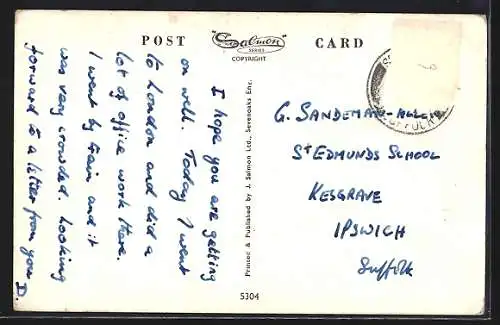 POST
"Salmon"
SERIES
COPYRIGHT
CARD
I hope you are getting
on well. Today I went
to London and did a
lot of office work there.
I went by train and it
was very crowded. Looking
forward to a letter from you
D.
Printed & Published by J. Salmon Ltd., Sevenoaks Eng.
G. SANDEMAN-ALLEN
ST EDMUNDS SCHOOL
KESGRAVE
IPSWICH
Suffolk
SUFFOLK
5304